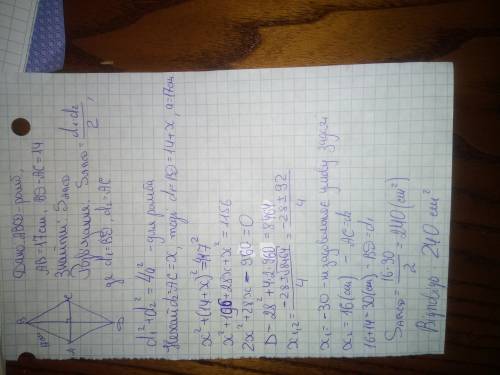 Дано: ABCD ромб,
AB = 17 см, BD - AC = 14
Знайти: S_ABCD
S_ABCD = d₁d₂/2,
де d₁ = BD, d₂ = AC
B
A
C
D
d₁² + d₂² = 4a² - для ромба
Нехай d₂ = AC = x, тоді d₁ = BD = 14 + x, a = 17 см
x² + (14 + x)² = 4·17²
x² + 196 + 28x + x² = 1156
2x² + 28x - 960 = 0
D = 28² + 4·2·960 = 8464
x₁,₂ = (-28 ± √8464)/4 = (-28 ± 92)/4
x₁ = -30 - не задовольняє умову задачі
x₂ = 16 (см) - AC = d₂
16 + 14 = 30 (см) BD = d₁
S_ABCD = 16·30/2 = 240 (см²)
Відповідь 240 см²